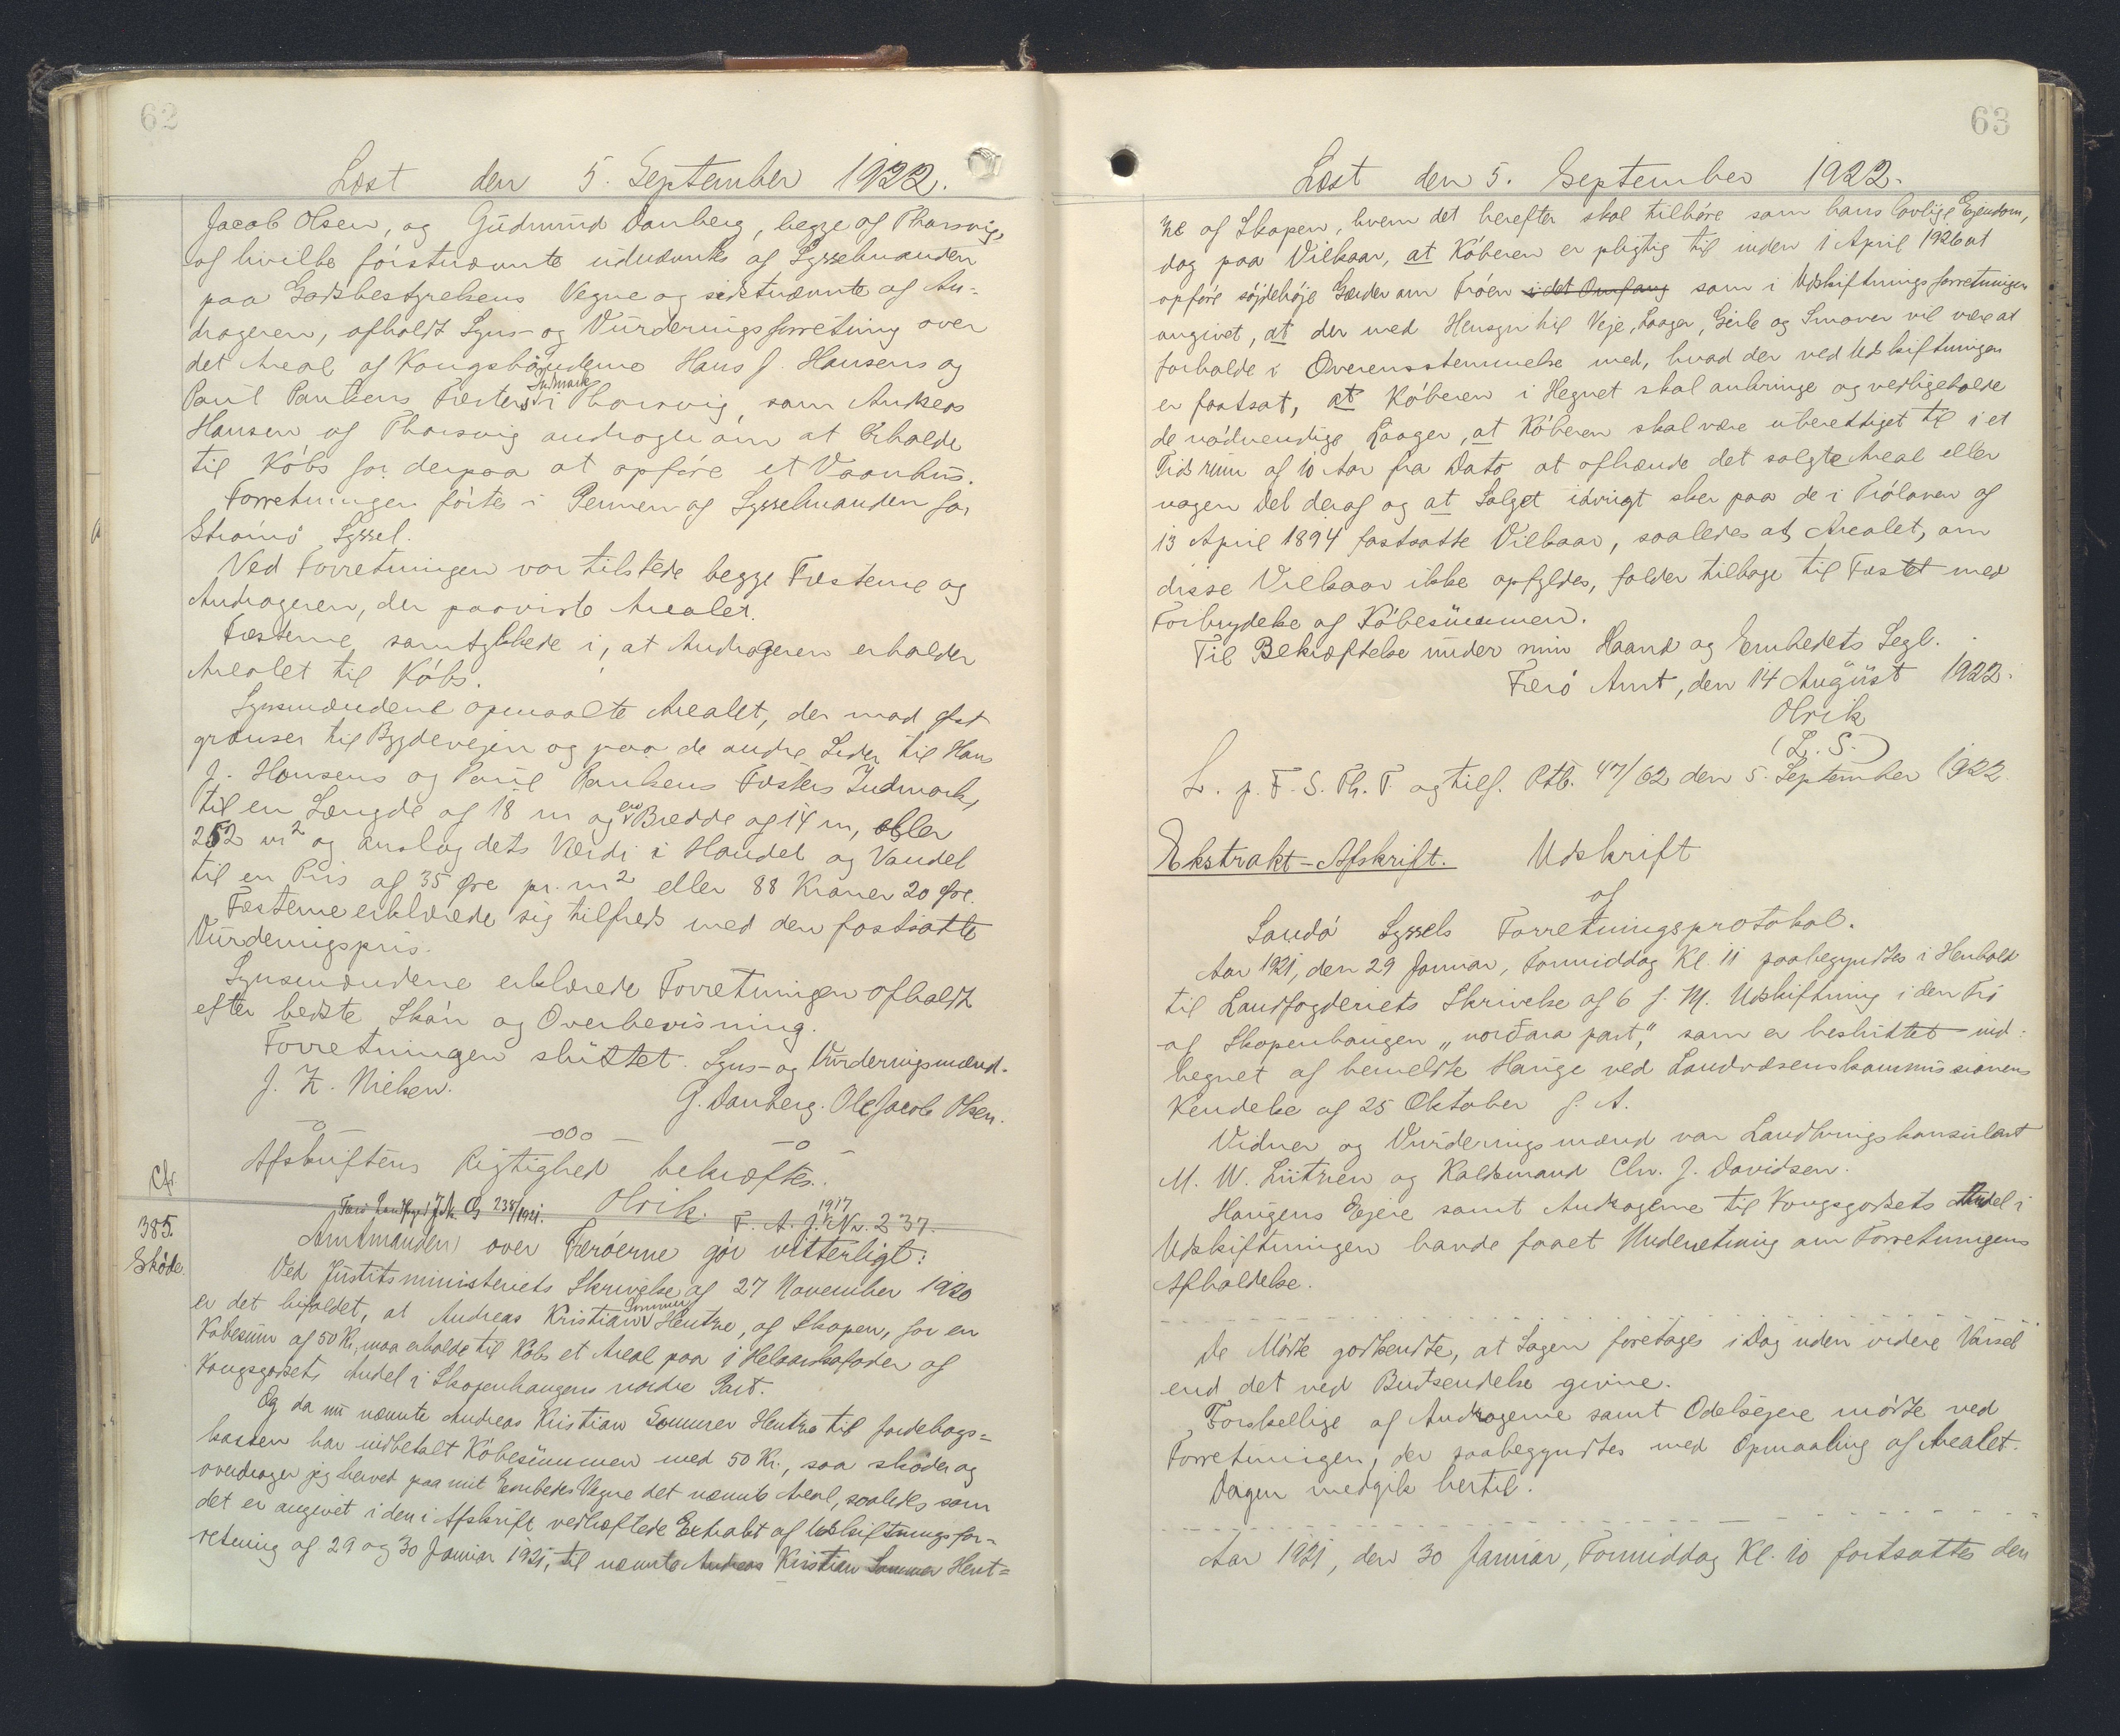 62
Læst den 5. September 1922.
Jacob Olsen, og Gudmund Danberg, begge af Thorsvig,
af hvilke förstnævnte udnævnts af Sysselmanden
paa Godsbestyrelsens Vegne og sidstnævnte af An-
drageren, afholdt Syns- og Vurderingsforretning over
det Areal af Kongsbönderne Hans J. Hansens og
Poul Poulsens Fæsters Indmark i Thorsvig, som Andreas
Hansen af Thorsvig androger om at erholde
til Köbs for derpaa at opföre et Vaanhus.
Forretningen förtes i Pennen af Sysselmanden for
Strömö Syssel.
Ved Forretningen var tilstede begge Fæsterne og
Andrageren, der paaviste Arealet.
Fæsterne samtykkede i, at Andrageren erholder
Arealet til Köbs.
Synsmændene opmaalte Arealet, der mod Øst
grænser til Bygdevejen og paa de andre Sider til Hans
J. Hansens og Poul Poulsens Fæsters Indmark,
til en Længde af 18 m og en Bredde af 14 m, eller
252 m² og anslog dets Værdi i Handel og Vandel
til en Pris af 35 Øre pr. m² eller 88 Kroner 20 Øre.
Fæsterne erklærede sig tilfreds med den fastsatte
Vurderingspris.
Synsmændene erklærede Forretningen afholdt
efter bedste Skön og Overbevisning.
Forretningen sluttet. Syns- og Vurderingsmænd.
J. K. Nielsen. G. Danberg. Ole Jacob Olsen.
Afskriftens Rigtighed bekræftes.
Cfr. Olrik. F. A. J. Nr. 1917/237.
385.
Sköde.
Amtmanden over Færöerne gör vitterligt:
Ved Justitsministeriets Skrivelse af 27 November 1920
er det bifaldet, at Andreas Kristian Sommer Hentze, af Skopen, for en
Købesum af 50 Kr., maa erholde til Köbs et Areal paa 1 Helaarskofoder af
Kongsgodsets Andel i Skopenhaugens nordre Part.
Og da nu nævnte Andreas Kristian Sommer Hentze til Jordebogs-
kassen har indbetalt Köbesummen med 50 Kr., saa sköder og
overdrager jeg herved paa mit Embedes Vegne det nævnte Areal, saaledes som
det er angivet i den i Afskrift vedhæftede Extrakt af Udskiftningsfor-
retning af 29 og 30 Januar 1921, til nævnte Andreas Kristian Sommer Hent-
63
Læst den 5. September 1922.
ze af Skopen, hvem det herefter skal tilhöre som hans lovlige Ejendom,
dog paa Vilkaar, at Köberen er pligtig til inden 1 April 1926 at
opföre söjdehöje Gærder om Tröen i det Omfang som i Udskiftningsforretningen
angivet, at der med Hensyn til Veje, Laager, Geile og Smaaer vil være at
forholde i Overensstemmelse med, hvad der ved Udskiftningen
er fastsat, at Köberen i Hegnet skal anbringe og vedligeholde
de nödvendige Laager, at Köberen skal være uberettiget til i et
Tidsrum af 10 Aar fra Dato at afhænde det solgte Areal eller
nogen Del deraf og at Salget iövrigt sker paa de i Trölaven af
13 April 1894 fastsatte Vilkaar, saaledes at Arealet, om
disse Vilkaar ikke opfyldes, falder tilbage til Fæstet med
Forbrydelse af Köbesummen.
Til Bekræftelse under min Haand og Embedets Segl.
Færö Amt, den 14 August 1922.
Olrik
(L. S.)
L. p. F. S. Th. T. og tilf. Ptb. 47/62 den 5. September 1922.
Ekstrakt-Afskrift. Udskrift
af
Sandö Syssels Forretningsprotokol.
Aar 1921, den 29 Januar, Formiddag Kl. 11 paabegyndtes i Henhold
til Landfogderiets Skrivelse af 6 s. M. Udskiftning i den Trö
af Skopenhaugen „norðara part", som er besluttet ind-
hegnet af bemeldte Hauge ved Landvæsenskommissionens
Kendelse af 25 Oktober f. A.
Vidner og Vurderingsmænd var Landbrugskonsulent
M. W. Lützen og Kaldsmand Chr. J. Davidsen.
Haugens Ejere samt Andragerne til Kongsgodsets Andel i
Udskiftningen havde faaet Underretning om Forretningens
Afholdelse.
De Mödte godkendte, at Sagen foretages i Dag uden videre Varsel
end det ved Budsendelse givne.
Forskellige af Andragerne samt Odelsejere mödte ved
Forretningen, der paabegyndtes med Opmaaling af Arealet.
Dagen medgik hertil.
Aar 1921, den 30 Januar, Formiddag Kl. 10 fortsattes den